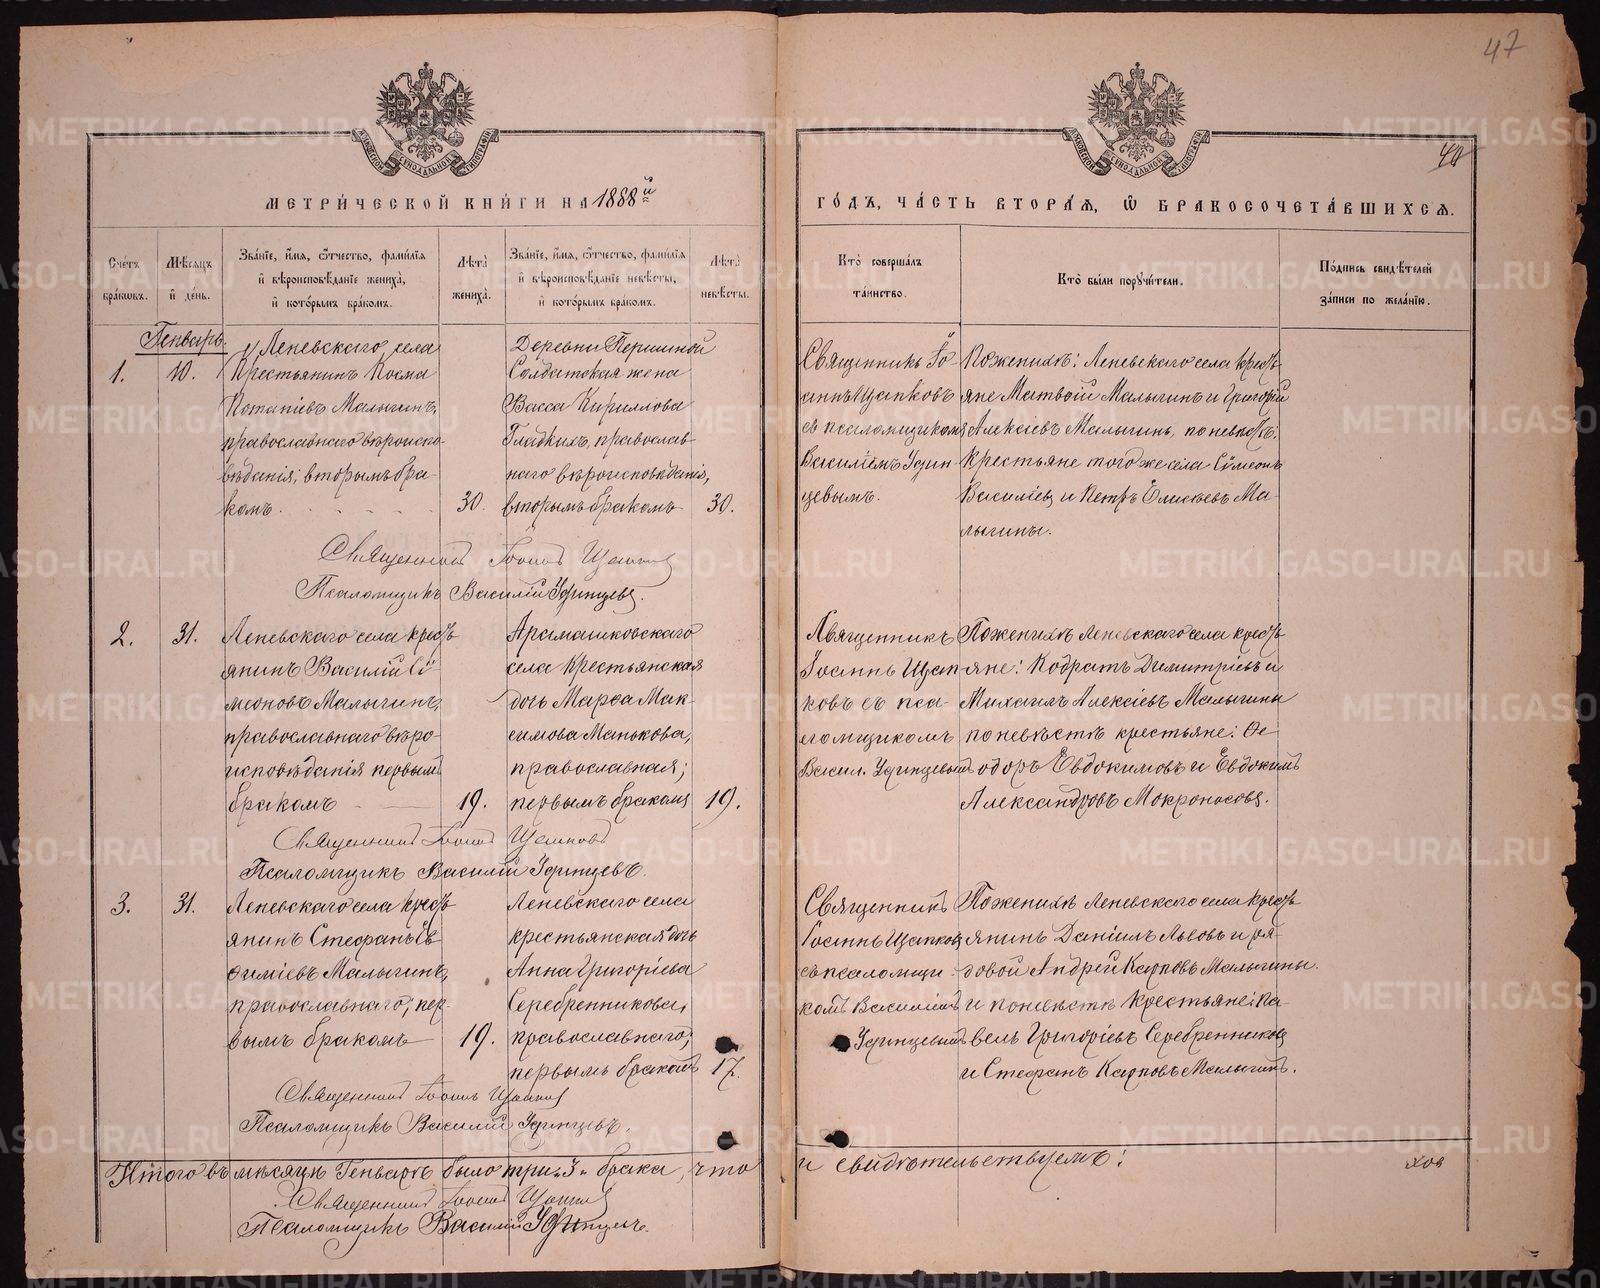 47
40
МЕТРИ́ЧЕСКОЙ КНИ́ГИ НА 1888й
ГО́ДЪ, ЧА́СТЬ ВТОРА́Я, Ѡ҆ БРАКОСОЧЕТА́ВШИХСЯ.
Сче́тъ бра́кѡвъ.
Мѣ́сяцъ и҆ де́нь.
Зва́нїе, и҆́мя, ѻ҆́тчество, фами́лїя и҆ вѣроисповѣ́данїе жениха̀, и҆ кото́рымъ бра́комъ.
Лѣ́та жениха̀.
Зва́нїе, и҆́мя, ѻ҆́тчество, фами́лїя и҆ вѣроисповѣ́данїе невѣ́сты, и҆ кото́рымъ бра́комъ.
Лѣ́та невѣ́сты.
Кто̀ соверша́лъ та́инство.
Кто̀ бы́ли порꙋчи́тели.
По́дпись свидѣ́телей за́писи по жела́нїю.
Генварь.
1.
10.
Леневскаго села
Крестьянинъ Косма
Потапіевъ Малыгинъ,
православнаго вѣроиспо-
вѣданія; вторымъ бра-
комъ.
30.
Деревни Першиной
Солдатская жена
Васса Кириллова
Гладкихъ, православ-
наго вѣроисповѣданія,
вторымъ бракомъ
30.
Священникъ Іо
аннъ Щапковъ
съ псаломщикомъ
Василіемъ Удин
цевымъ.
По женихѣ: Леневскаго села крес-
яне Матвѣй Малыгинъ и Григорій
Алексѣевъ Малыгинъ, по невѣстѣ:
крестьяне того же села Сѵмеонъ
Василіевъ и Петръ Елисѣевъ Ма-
лыгины.
Священникъ Іоаннъ Щапковъ
Псаломщикъ Василій Удинцевъ.
2.
31.
Леневскаго села крес-
янинъ Василій Сѵ
меоновъ Малыгинъ,
православнаго вѣро-
исповѣданія первымъ
бракомъ
19.
Арамашковскаго
села Крестьянская
дочь Марѳа Мак-
симова Манькова,
православная;
первымъ бракомъ
19.
Священникъ
Іоаннъ Щап-
ковъ съ пса-
ломщикомъ
Васил. Удинцевымъ
По женихѣ Леневскаго села крес-
яне: Кодратъ Димитріевъ и
Михаилъ Алексѣевъ Малыгины
по невѣстѣ крестьяне: Ѳе
одоръ Евдокимовъ и Евдокимъ
Александровъ Мокроносовъ.
Священникъ Іоаннъ Щапковъ
Псаломщикъ Василій Удинцевъ.
3.
31.
Леневскаго села крес-
янинъ Стефанъ Ев
ѳиміевъ Малыгинъ,
православнаго; пер-
вымъ бракомъ
19.
Леневскаго села
крестьянская дочь
Анна Григоріева
Серебренникова,
православнаго;
первымъ бракомъ
17.
Священникъ
Іоаннъ Щапковъ
съ псаломщи-
комъ Василіемъ
Удинцевымъ
По женихѣ Леневскаго села крес-
янинъ Даніилъ Львовъ и ря-
довой Андрей Карповъ Малыгины.
и по невѣстѣ Крестьяне: Па-
велъ Григоріевъ Серебренниковъ
и Стефанъ Карповъ Малыгинъ.
Священникъ Іоаннъ Щапковъ
Псаломщикъ Василій Удинцевъ.
Итого въ мѣсяцѣ Генварѣ было три "3" брака, что
и свидѣтельствуемъ:
Священникъ Іоаннъ Щапковъ
Псаломщикъ Василій Удинцевъ.
METRIKI.GASO-URAL.RU